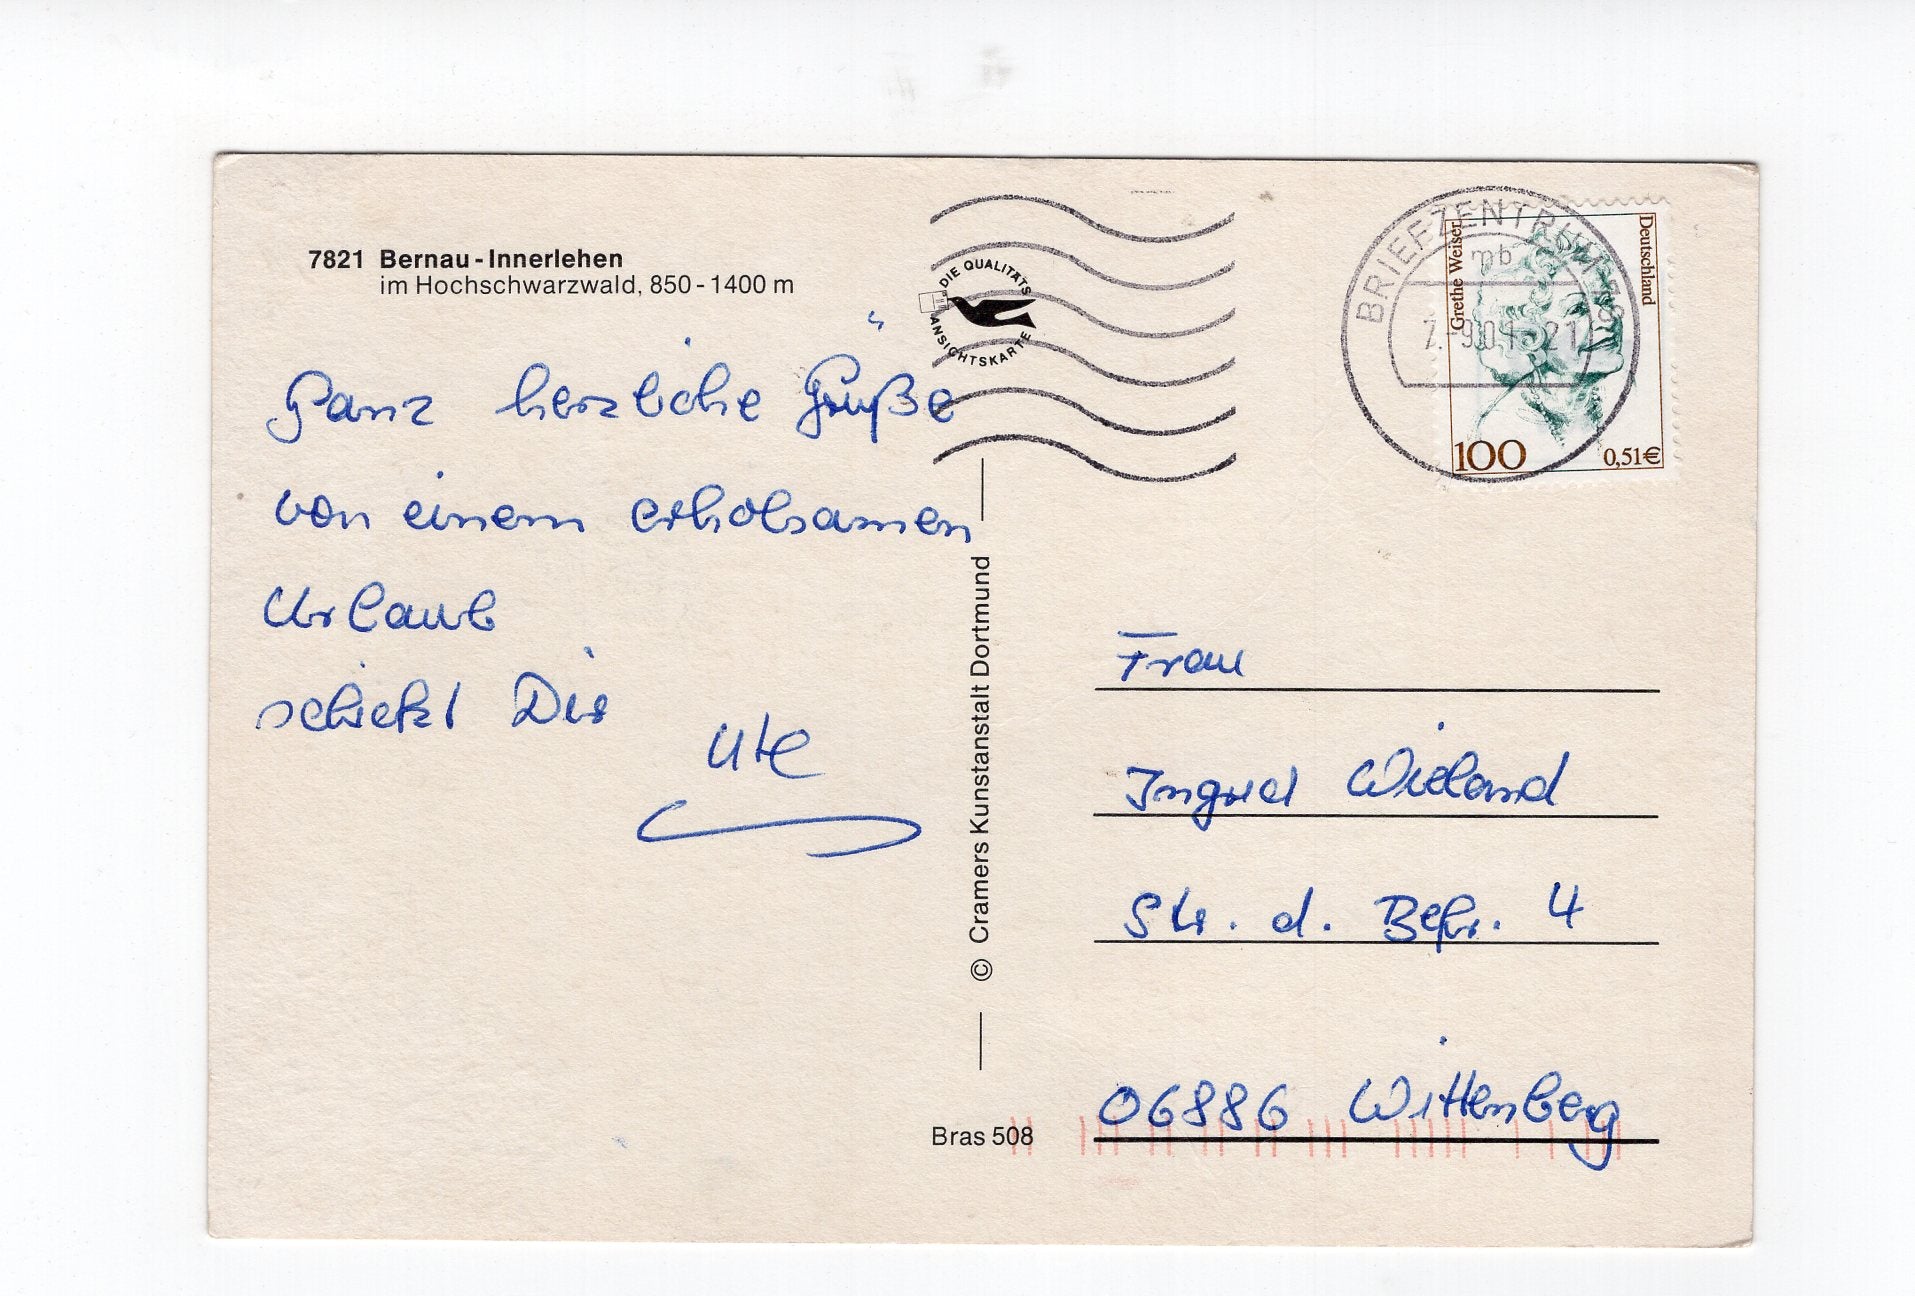 7821 Bernau-Innerlehen
im Hochschwarzwald, 850-1400 m
DIE QUALITÄTS
ANSICHTSKARTE
Ganz herzliche Grüße
von einem erholsamen
Urlaub
schickt Dir
Ute
© Cramers Kunstanstalt Dortmund
Bras 508
BRIEFZENTRUM
mb
7.-9.01-21
Grethe Weiser
Deutschland
100
0,51€
Frau
Ingrid Wieland
Str. d. Befr. 4
06886 Wittenberg